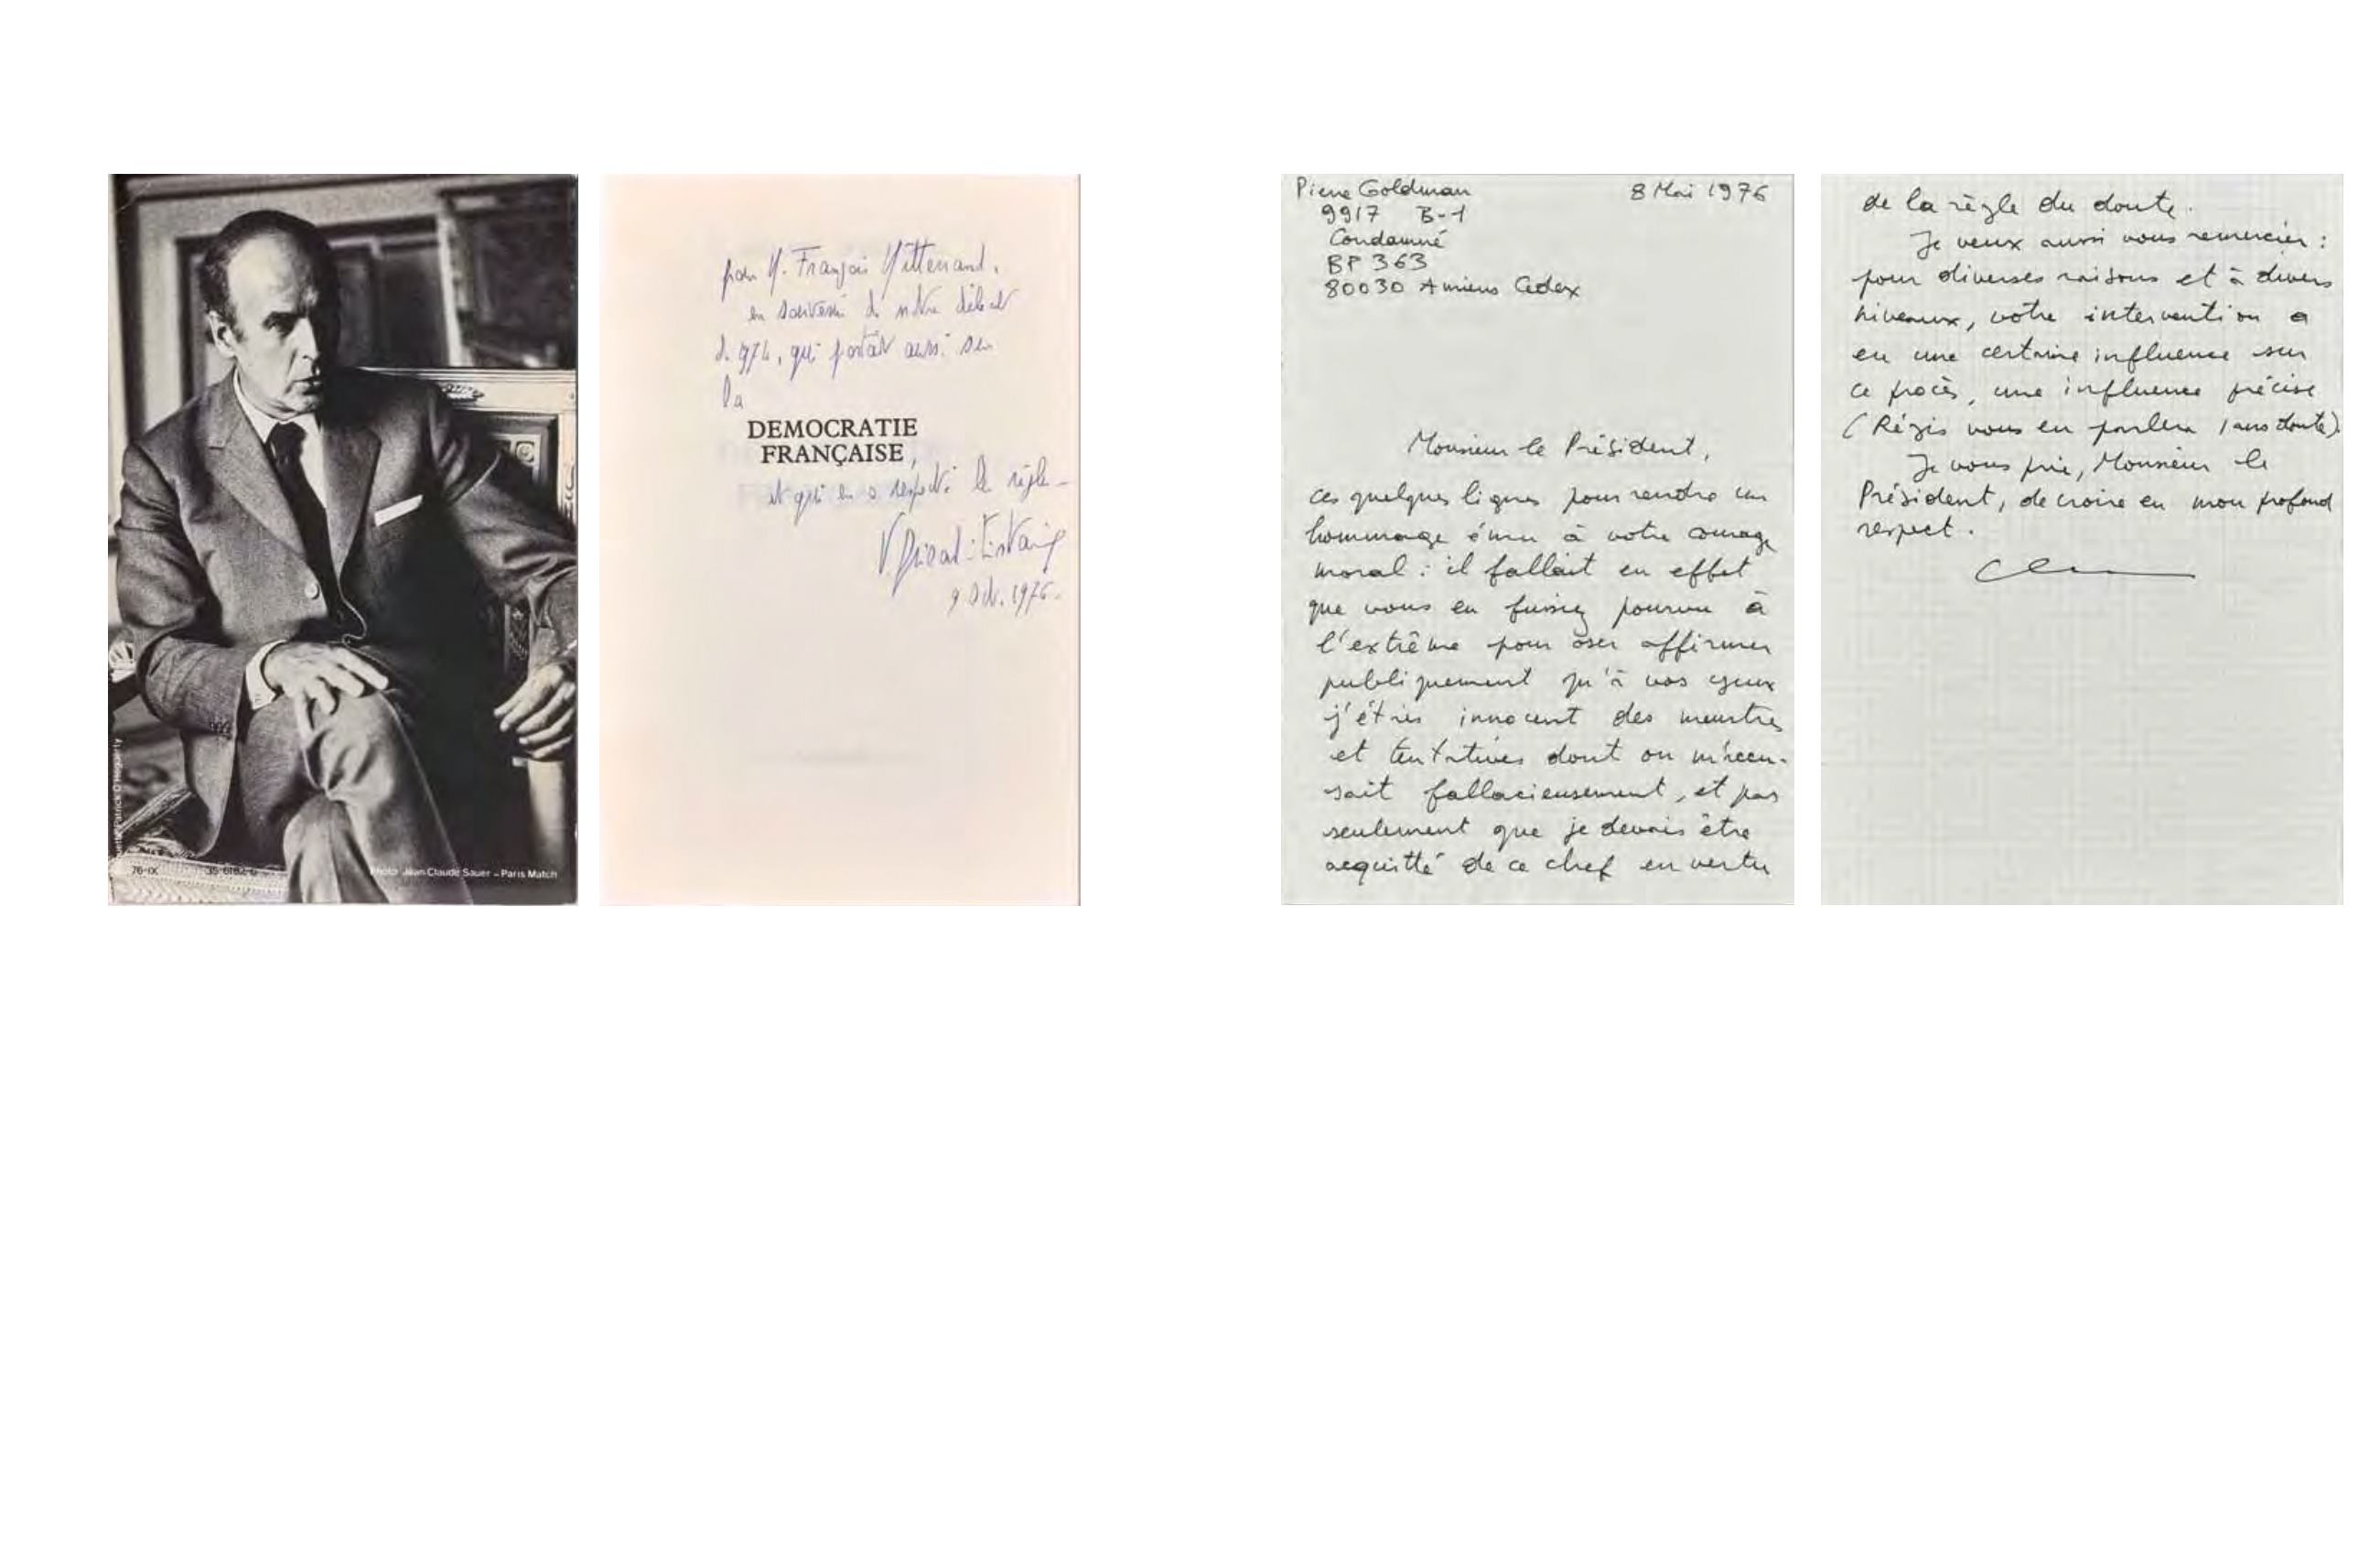 Patrick O'Heguerty
76-IX
35-6182-6
Photo Jean Claude Sauer – Paris Match
pour M. François Mitterrand,
en souvenir de notre débat
de 974, qui portait aussi sur
la
DEMOCRATIE
FRANÇAISE,
et qui en a respecté la règle –
V. Giscard d'Estaing
9 Oct. 1976.
Pierre Goldman
8 Mai 1976
9917 B-1
Condamné
BP 363
80030 Amiens Cedex
Monsieur le Président,
ces quelques lignes pour rendre un
hommage ému à votre courage
moral : il fallait en effet
que vous en fussiez pourvu à
l'extrême pour oser affirmer
publiquement qu'à vos yeux
j'étais innocent des meurtres
et tentatives dont on m'accu-
sait fallacieusement, et pas
seulement que je devais être
acquitté de ce chef en vertu
de la règle du doute.
Je veux aussi vous remercier :
pour diverses raisons et à divers
niveaux, votre intervention a
eu une certaine influence sur
ce procès, une influence précise
(Régis vous en parlera sans doute).
Je vous prie, Monsieur le
Président, de croire en mon profond
respect.